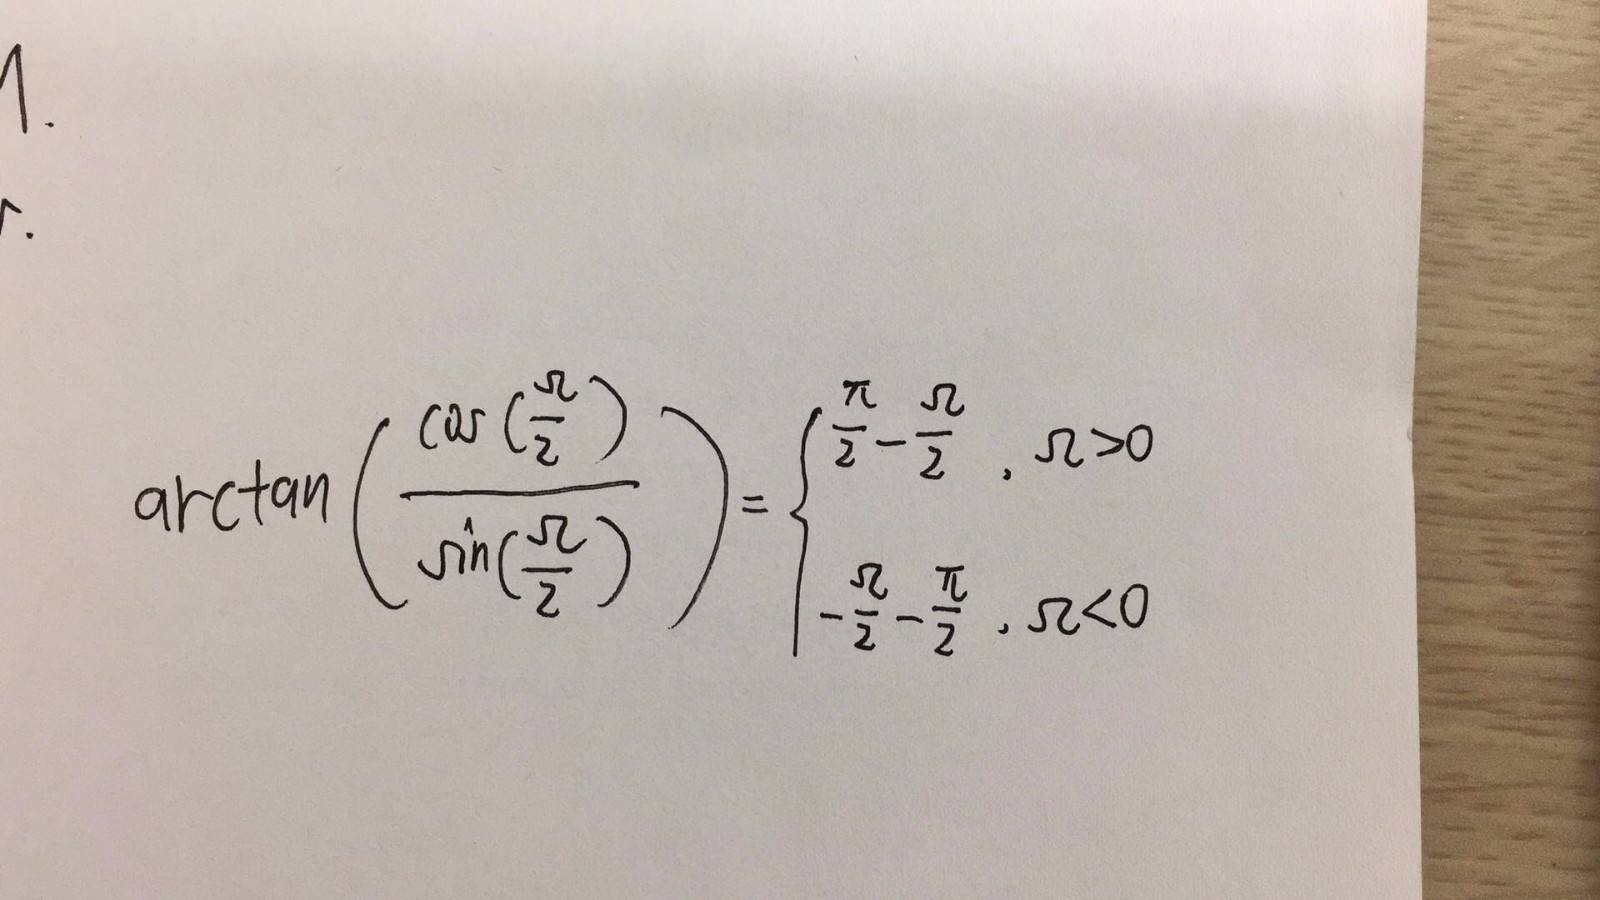 1.
r.
arctan(cos(Ω/2)/sin(Ω/2)) = { π/2 - Ω/2 , Ω>0
-Ω/2 - π/2 , Ω<0